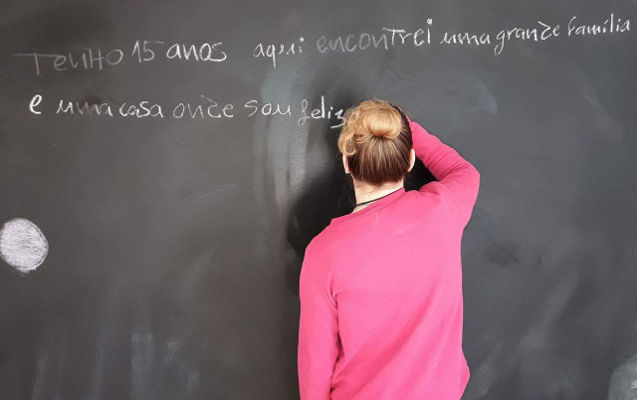 Tenho 15 anos aqui encontrei uma grande família
e uma casa onde sou feliz